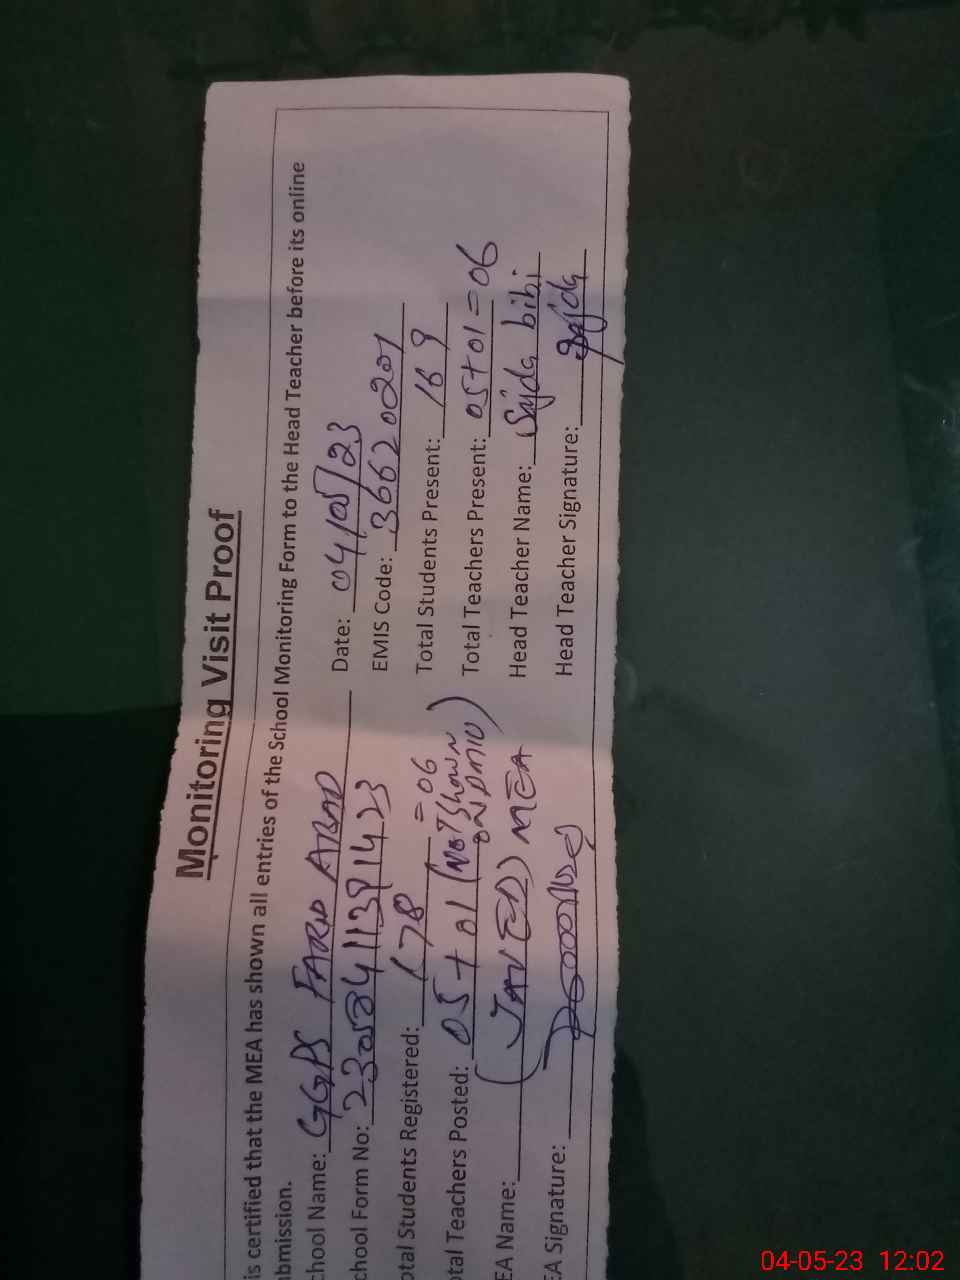 Monitoring Visit Proof
is certified that the MEA has shown all entries of the School Monitoring Form to the Head Teacher before its online
bmission.
chool Name: GGPS FARID ABAD Date: 04/05/23
chool Form No: EMIS Code: 36620201
otal Students Registered: 178 Total Students Present: 169
otal Teachers Posted: 05+01 (Not Shown on PMIU) = 06 Total Teachers Present: 05+01=06
EA Name: (JAVED) MEA Head Teacher Name: Sajda bibi
EA Signature: Head Teacher Signature: Sajda
04-05-23 12:02